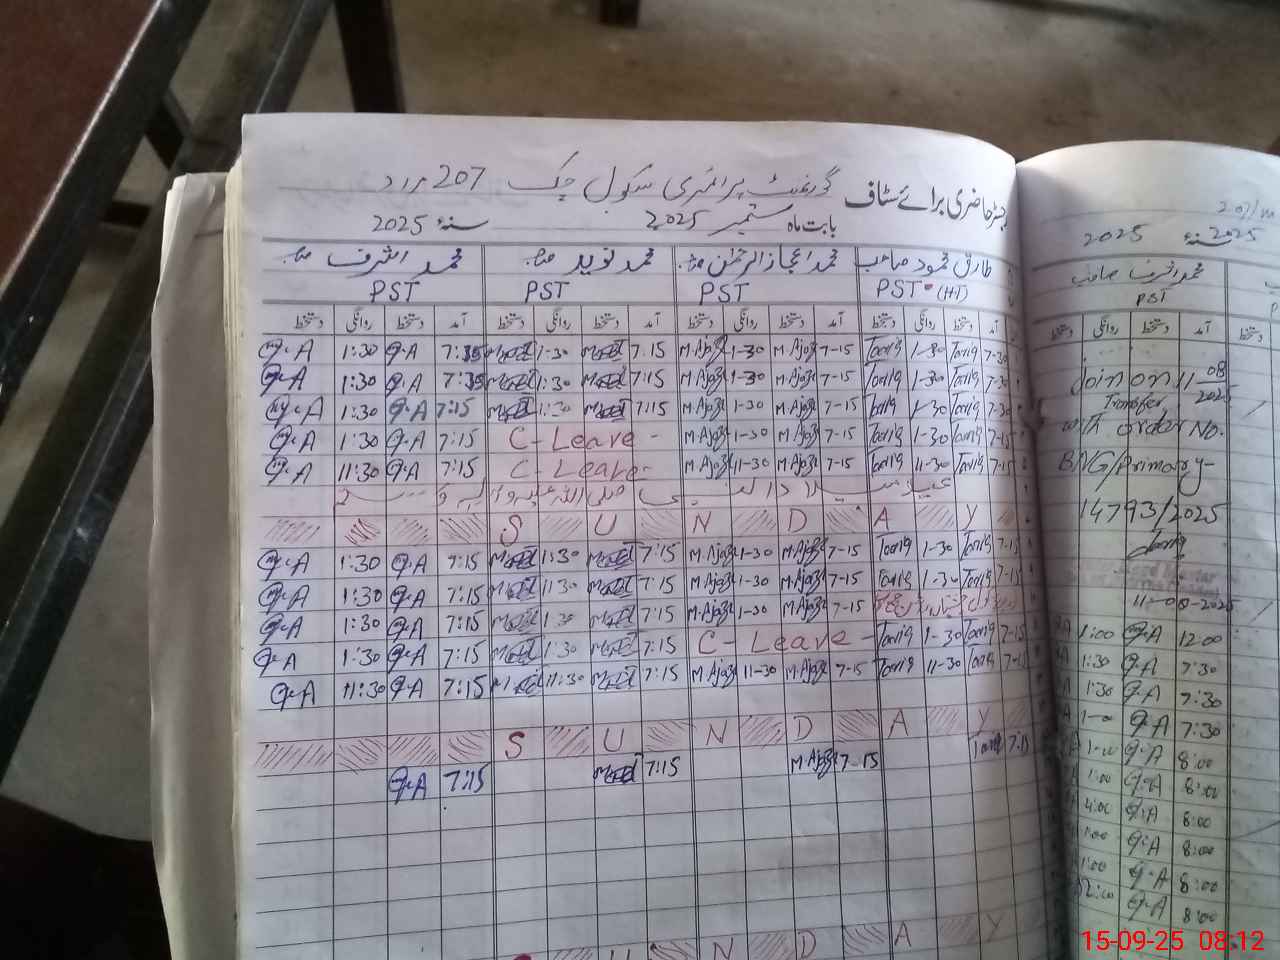 رجسٹر حاضری برائے سٹاف گورنمنٹ پرائمری سکول چک 207 مراد
بابت ماہ ستمبر 2025 سنہ 2025
طارق محمود صاحب محمد اعجاز الرحمٰن محمد نوید محمد اشرف
PST (HT) PST PST PST
آمد دستخط روانگی دستخط آمد دستخط روانگی دستخط آمد دستخط روانگی دستخط آمد دستخط روانگی دستخط
G.A 1:30 G.A 7:15 1-30 7:15 M.Ajaz 1-30 M.Ajaz 7-15 Tariq 1-30 Tariq 7-30
G.A 1:30 G.A 1:30 7:15 M.Ajaz 1-30 M.Ajaz 7-15 Tariq 1-30 Tariq 7-30
G.A 1:30 G.A 7:15 1:30 7:15 M.Ajaz 1-30 M.Ajaz 7-15 Tariq 1-30 Tariq 7-30
G.A 1:30 G.A 7:15 C-Leave - M.Ajaz 1-30 M.Ajaz 7-15 Tariq 1-30 Tariq 7-15
G.A 11:30 G.A 7:15 C-Leave - M.Ajaz 11-30 M.Ajaz 7-15 Tariq 11-30 Tariq 7-15
عید میلاد النبی صلی اللہ علیہ وآلہ وسلم
S U N D A Y
G.A 1:30 G.A 7:15 1:30 7:15 M.Ajaz 1-30 M.Ajaz 7-15 Tariq 1-30 Tariq 7-15
G.A 1:30 G.A 7:15 1:30 7:15 M.Ajaz 1-30 M.Ajaz 7-15 Tariq 1-30 Tariq 7-15
G.A 1:30 G.A 7:15 1:30 7:15 M.Ajaz 1-30 M.Ajaz 7-15
G.A 1:30 G.A 7:15 1:30 7:15 C- Leave - Tariq 1-30 Tariq 7-15
G.A 11:30 G.A 7:15 11:30 7:15 M.Ajaz 11-30 M.Ajaz 7-15 Tariq 11-30 Tariq 7-15
S U N D A Y
G.A 7:15 7:15 M.Ajaz 7-15 Tariq 7:15
U N D A Y
2025 سنہ 2025
محمد اشرف صاحب
PST
آمد دستخط روانگی دستخط
Join on 11 08 2025
Transfer
with order No.
BNG/Primary-
14793/2025
Head Master
11-08-2025
1:00 G.A 12:00
1:30 G.A 7:30
1:30 G.A 7:30
1-00 G.A 7:30
1:00 G.A 8:00
1:00 G.A 8:00
1:00 G.A 8:00
1:00 G.A 8:00
1:00 G.A 8:00
12:00 G.A 8:00
15-09-25 08:12